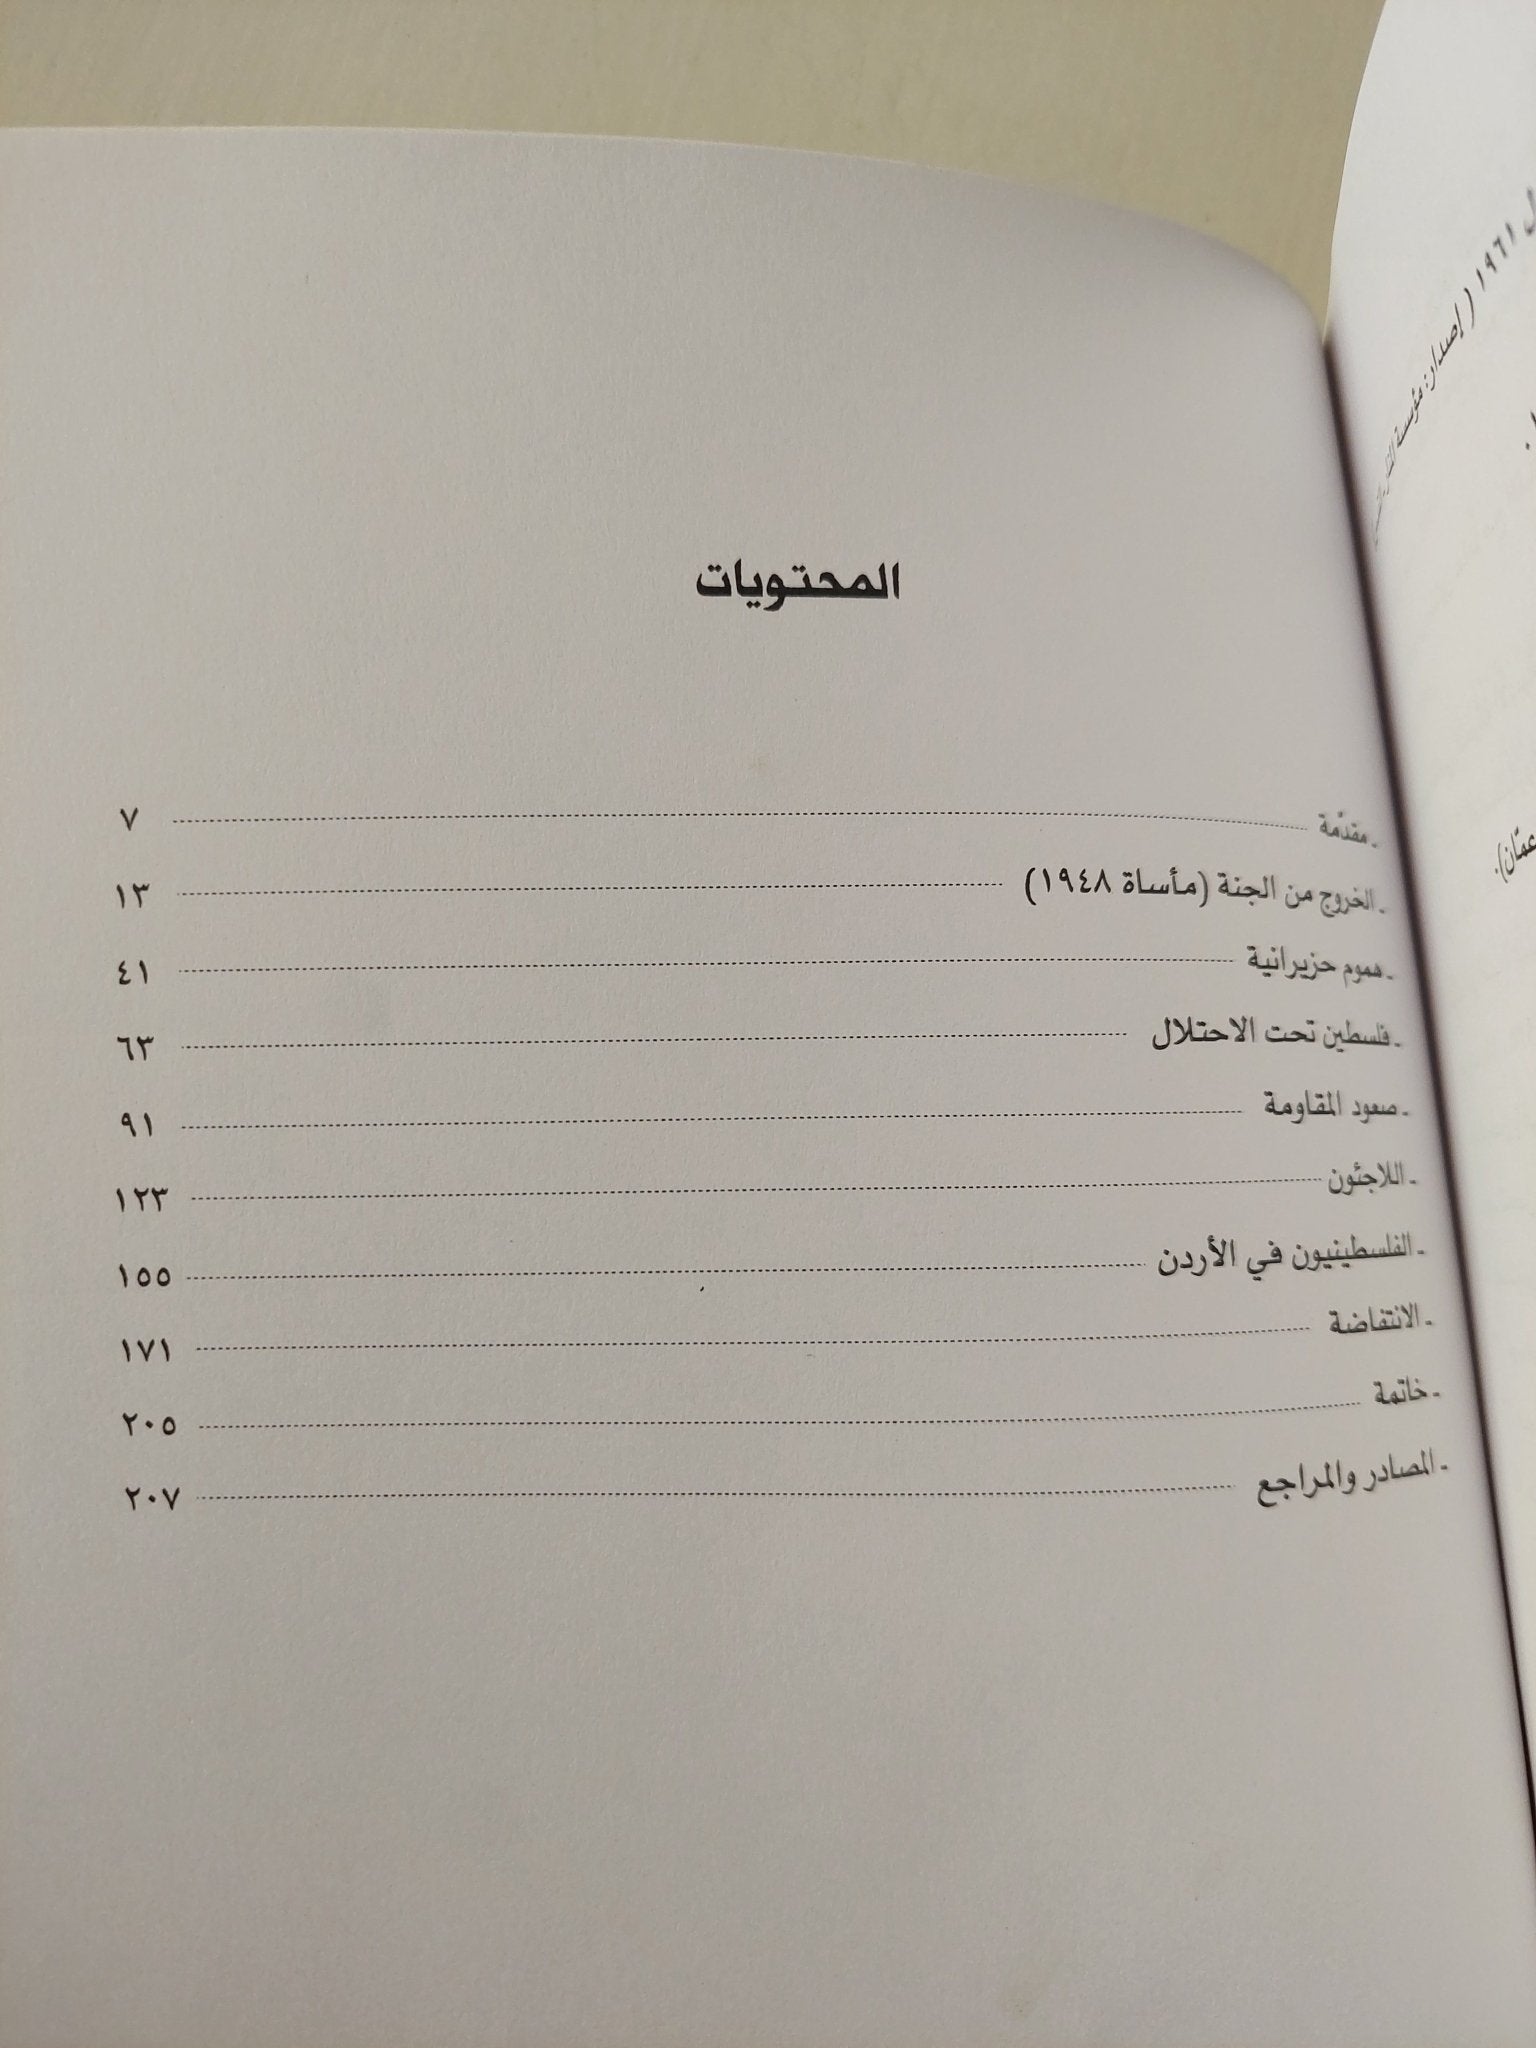 المحتويات
ـ مقدّمة ٧
ـ الخروج من الجنة (مأساة ١٩٤٨) ١٣
ـ هموم حزيرانية ٤١
ـ فلسطين تحت الاحتلال ٦٣
ـ صعود المقاومة ٩١
ـ اللاجئون ١٢٣
ـ الفلسطينيون في الأردن ١٥٥
ـ الانتفاضة ١٧١
ـ خاتمة ٢٠٥
ـ المصادر والمراجع ٢٠٧
١٩٦١ ( إصدار: مؤسسة
عمّان).